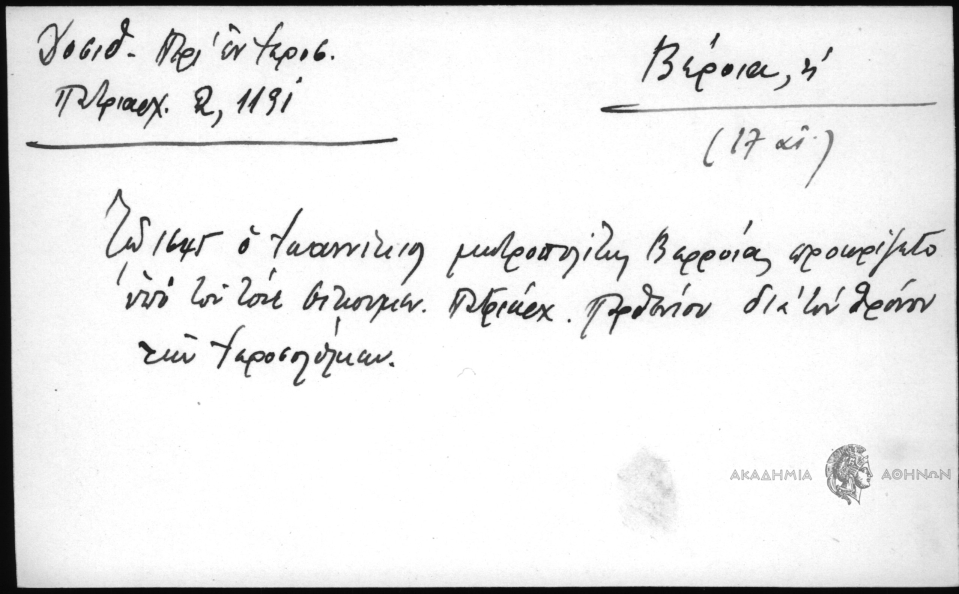 Δοσιθ. Περὶ ἐν Ἱεροσ.
Πατριαρχ. 2, 1191
Βέροια, ἡ
(17 αἰ.)
Τῷ 1645 ὁ Ἰωαννίκιος μητροπολίτης Βερροίας προωρίζετο
ὑπὸ τοῦ τότε οἰκουμεν. Πατριάρχ. Παρθενίου διὰ τὸν θρόνον
τῶν Ἱεροσολύμων.
ΑΚΑΔΗΜΙΑ ΑΘΗΝΩΝ